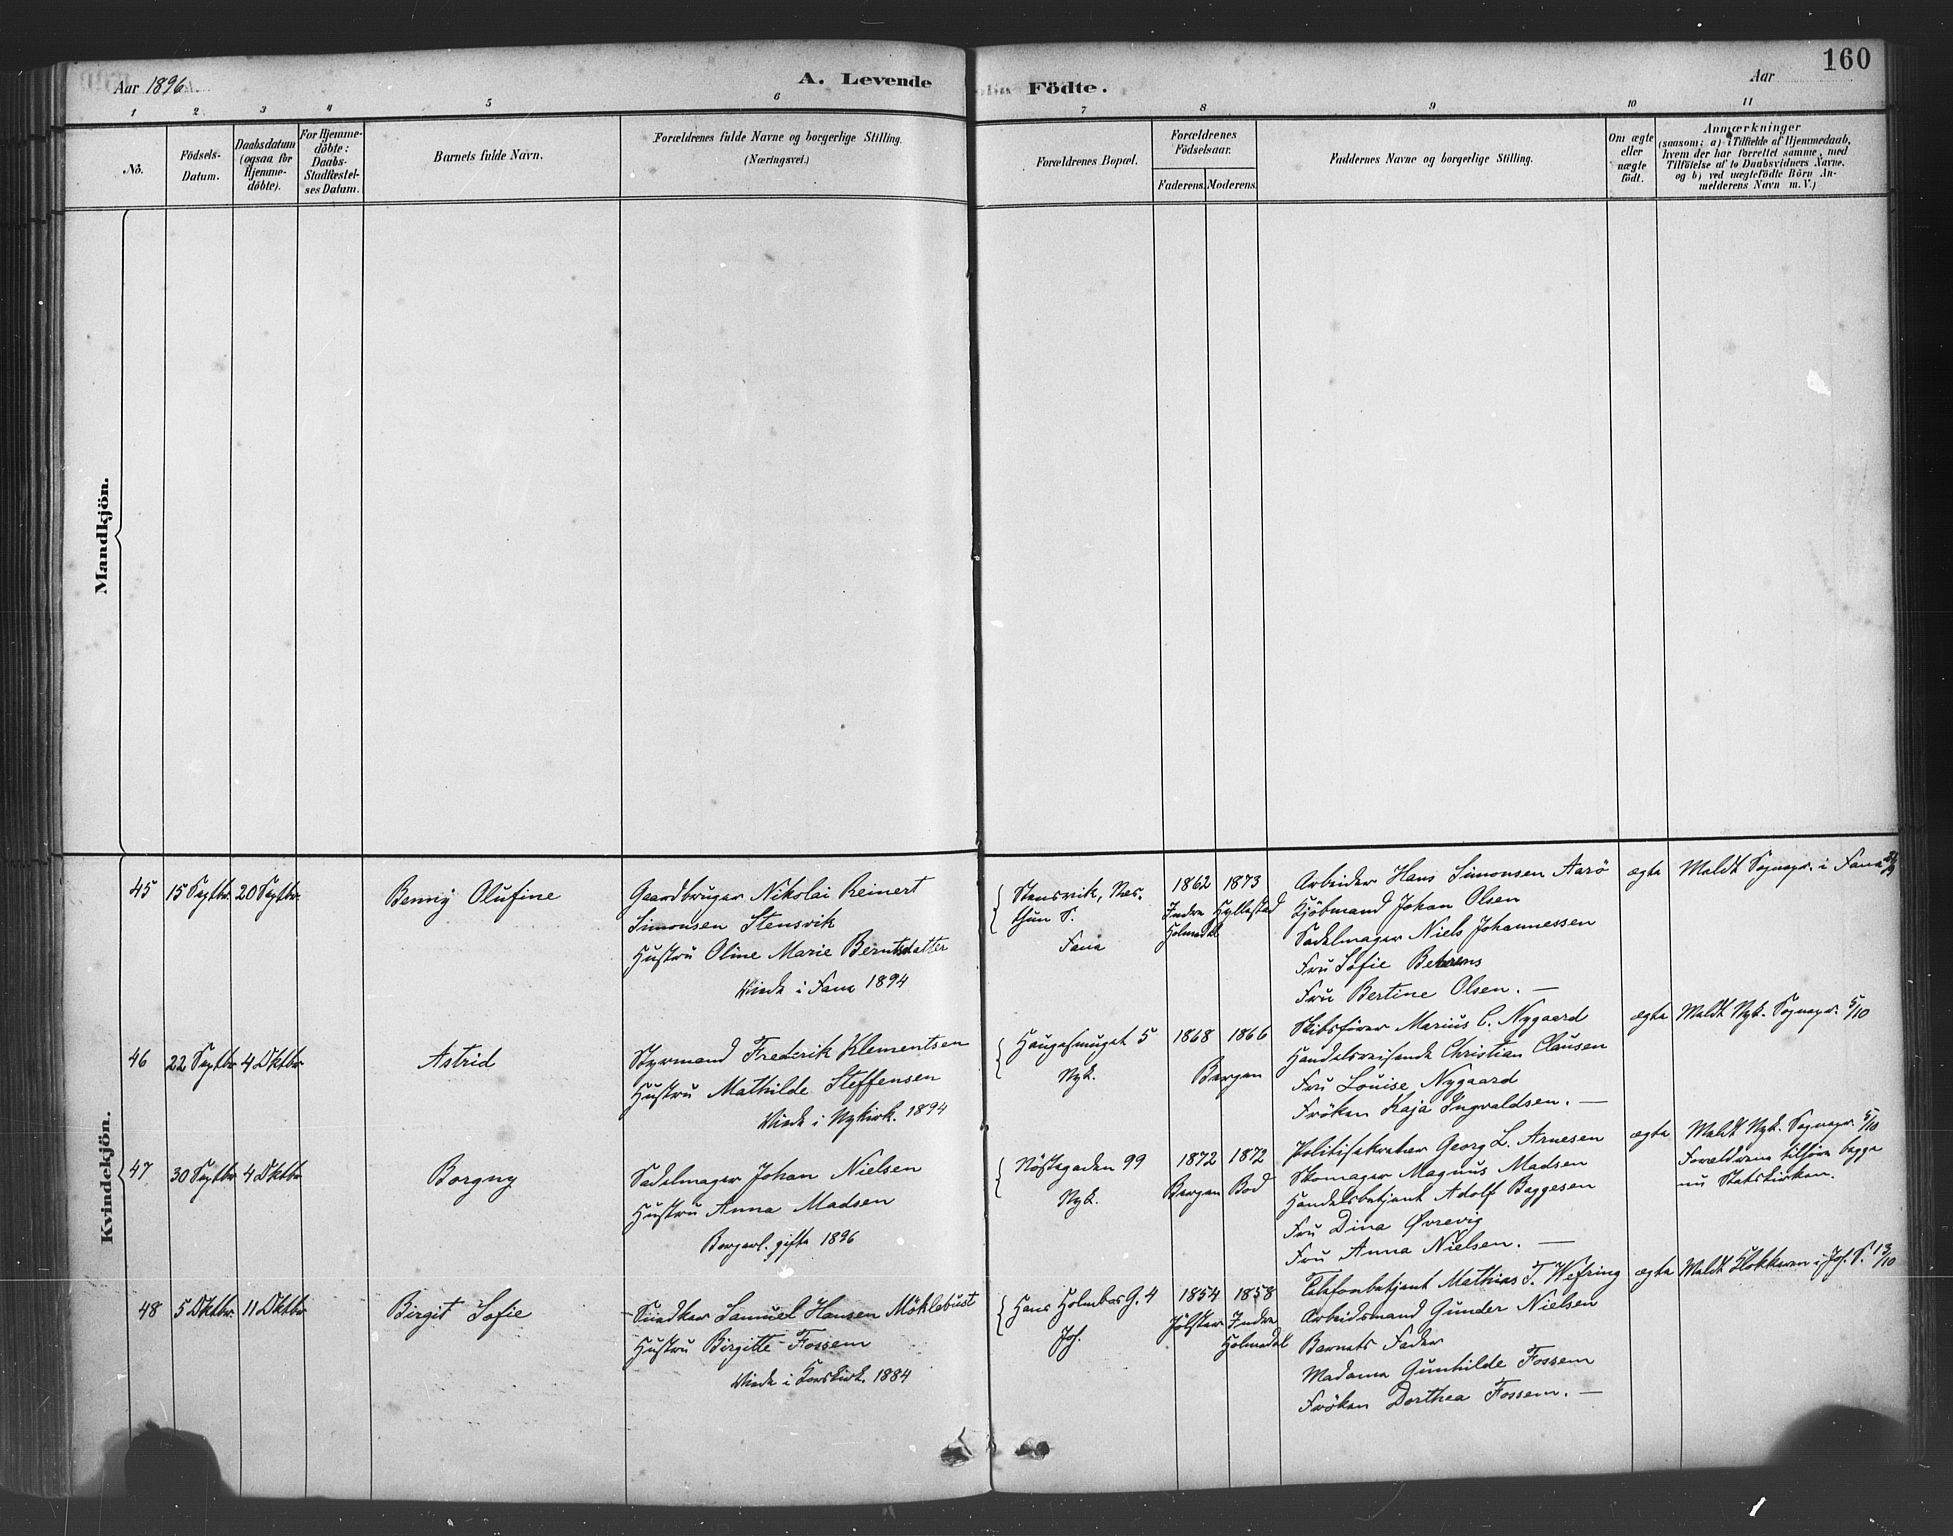 160
Aar 1896
A. Levende
Födte.
Aar
1 2 3 4 5 6 7 8 9 10 11
No.
Födsels-
Datum.
Daabsdatum
(ogsaa for
Hjemme-
döbte).
For Hjemme-
döbte:
Daabs-
Stadfæstel-
ses Datum.
Barnets fulde Navn.
Forældrenes fulde Navne og borgerlige Stilling.
(Næringsvei.)
Forældrenes Bopæl.
Forældrenes
Födselsaar.
Faderens. Moderens.
Faddernes Navne og borgerlige Stilling.
Om ægte
eller
uægte
födt.
Anmærkninger
(saasom: a) i Tilfælde af Hjemmedaab,
hvem der har forrettet samme, med
Tilföielse af to Daabsvidners Navne,
og b) ved uægtefödte Börn An-
melderens Navn m. V.)
Mandkjön.
Kvindekjön.
45 15 Septbr. 20 Septbr.
Benny Olufine
Gaardbruger Nikolai Reinert
Simonsen Stensvik
Hustru Oline Marie Berntsdatter
Viede i Fana 1894
Stensvik,
Fana
1862 1873
Indre Hyllestad
Holmedal
Arbeider Hans Simonsen Aarö
Kjöbmand Johan Olsen
Sadelmager Niels Johannessen
Fru Sofie Behrens
Fru Bertine Olsen. —
ægte
Meldt Sognepr. i Fana
46 22 Septbr. 4 Oktbr.
Astrid
Styrmand Frederik Klementsen
Hustru Mathilde Steffensen
Viede i Nykirk. 1894
Haugesmuget 5
Nyk.
1868 1866
Bergen
Skibsförer Marius C. Nygaard
Handelsreisende Christian Clausen
Fru Louise Nygaard
Fröken Kaja Ingvaldsen. —
ægte
Meldt Nyk. Sognepr. 5/10
47 30 Septbr. 4 Oktbr.
Borgny
Sadelmager Johan Nielsen
Hustru Anna Madsen
Borgerl. gifte 1896
Nöstegaden 99
Nyk.
1872 1872
Bergen Bod
Politisekretær Georg L. Arnesen
Skomager Magnus Madsen
Handelsbetjent Adolf Baggesen
Fru Dina Øvrevig
Fru Anna Nielsen. —
ægte
Meldt Nyk. Sognepr. 5/10
Forældrene tilhöre begge
nu Statskirken.
48 5 Oktbr. 11 Oktbr.
Birgit Sofie
Snedker Samuel Hansen Möklebust
Hustru Birgitte Fossem
Viede i Korskirk. 1884
Hans Holmboes G. 4
Joh.
1854 1858
Jölster Indre
Holmedal
Telefonbetjent Mathias T. Wefring
Arbeidsmand Gunder Nielsen
Barnets Fader
Madame Gunhilde Fossem
Fröken Dorthea Fossem. —
ægte
Meldt Klokkeren i Joh. S. 13/10